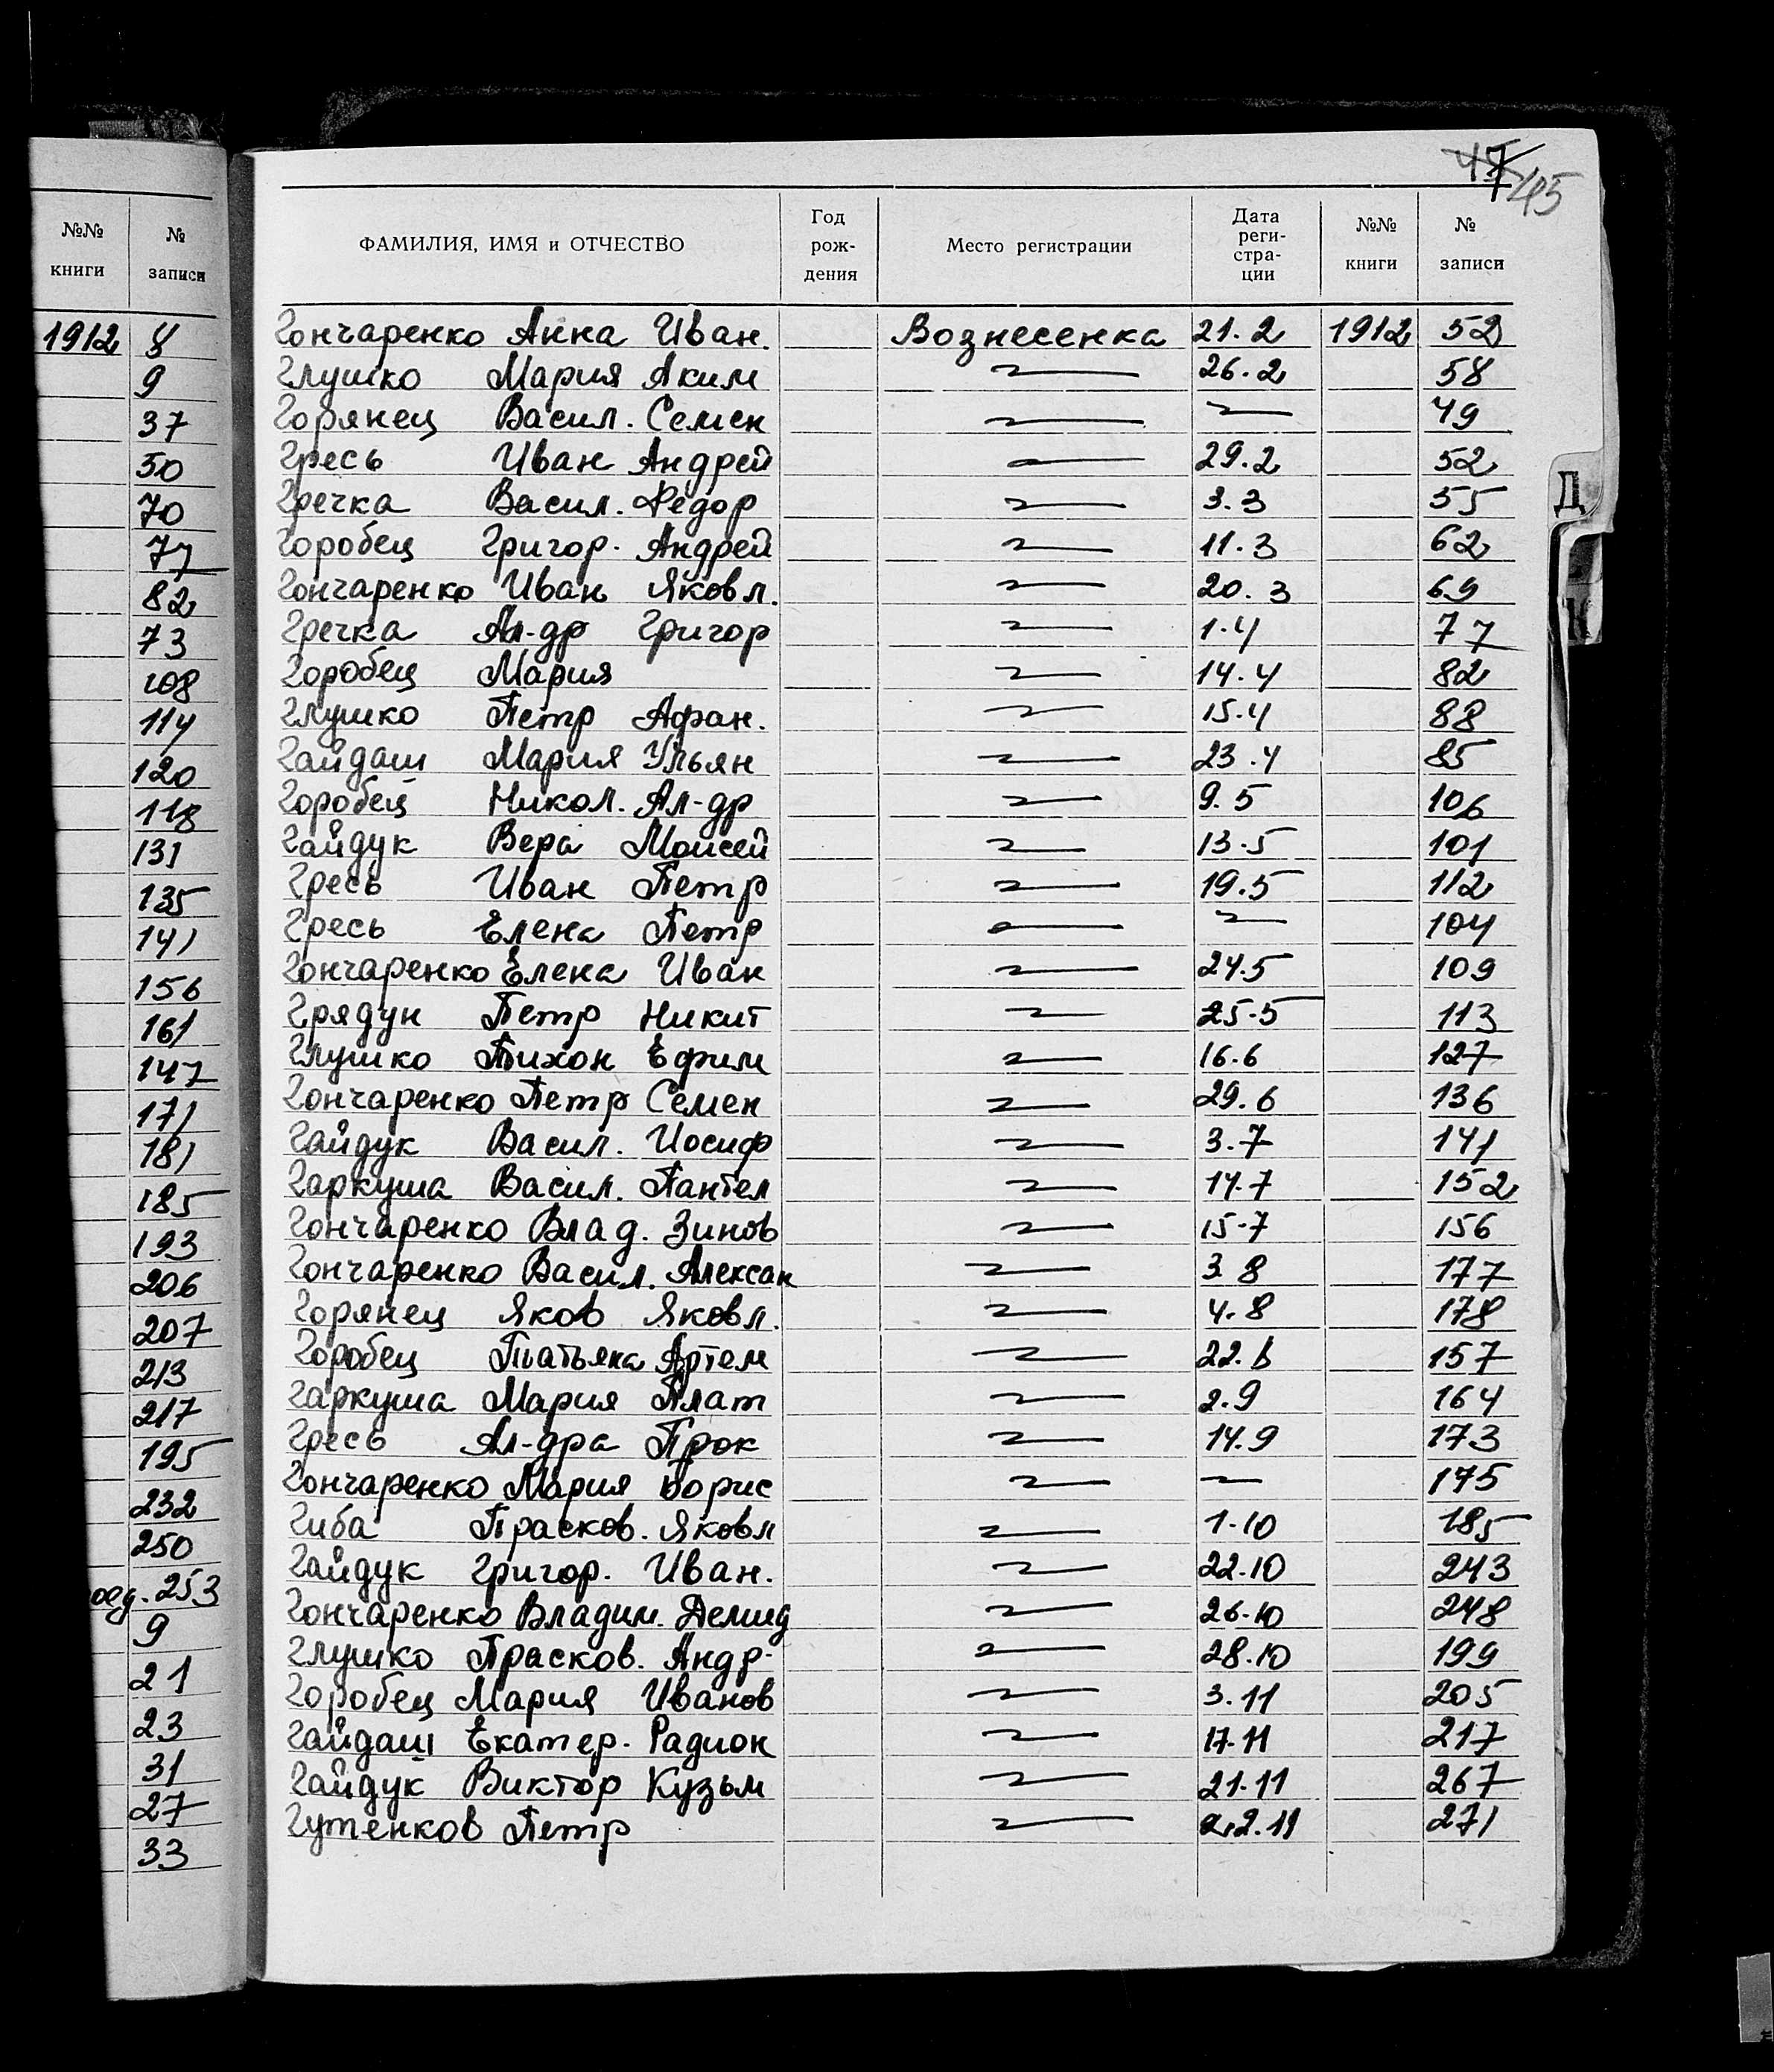 47 45
№№ книги № записи
ФАМИЛИЯ, ИМЯ и ОТЧЕСТВО Год рождения Место регистрации Дата регистрации №№ книги № записи
1912 8
9
37
50
70
77
82
73
108
114
120
118
131
135
141
156
161
147
171
181
185
193
206
207
213
217
195
232
250
253
9
21
23
31
27
33
Гончаренко Анна Иван. Вознесенка 21.2 1912 52
Глушко Мария Аким 26.2 58
Горянец Васил. Семен 49
Гресь Иван Андрей 29.2 52
Гречка Васил. Федор 3.3 55
Горобец Григор. Андрей 11.3 62
Гончаренко Иван Яковл. 20.3 69
Гречка Ал-др Григор 1.4 77
Горобец Мария 14.4 82
Глушко Петр Афан. 15.4 88
Гайдаш Мария Ульян 23.4 85
Горобец Никол. Ал-др 9.5 106
Гайдук Вера Моисей 13.5 101
Гресь Иван Петр 19.5 112
Гресь Елена Петр 104
Гончаренко Елена Иван 24.5 109
Грядун Петр Никит 25.5 113
Глушко Тихон Ефим 16.6 127
Гончаренко Петр Семен 29.6 136
Гайдук Васил. Иосиф 3.7 141
Гаркуша Васил. Пантел 14.7 152
Гончаренко Влад. Зинов 15.7 156
Гончаренко Васил. Алексан 3 8 177
Горянец Яков Яковл. 4.8 178
Горобец Татьяна Артем 22. 157
Гаркуша Мария Плат 2.9 164
Гресь Ал-дра Прок 14.9 173
Гончаренко Мария Борис 175
Гиба Прасков. Яковл 1.10 185
Гайдук Григор. Иван. 22.10 243
Гончаренко Владим. Демид 26.10 248
Глушко Прасков. Андр. 28.10 199
Горобец Мария Иванов 3.11 205
Гайдаш Екатер. Радион 17.11 217
Гайдук Виктор Кузьм 21.11 267
Гутенков Петр 22.11 271
Д
К